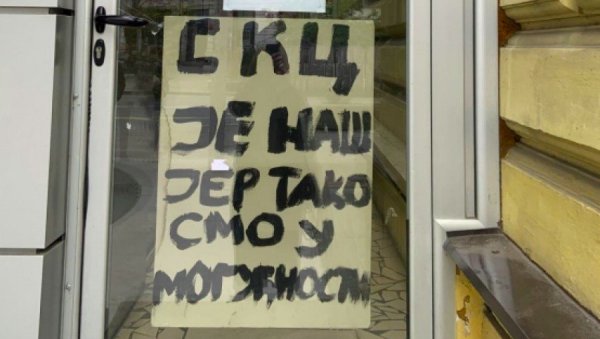 СКЦ
ЈЕ НАШ
ЈЕР ТАКО
СМО У
МОГУЋНОСТИ